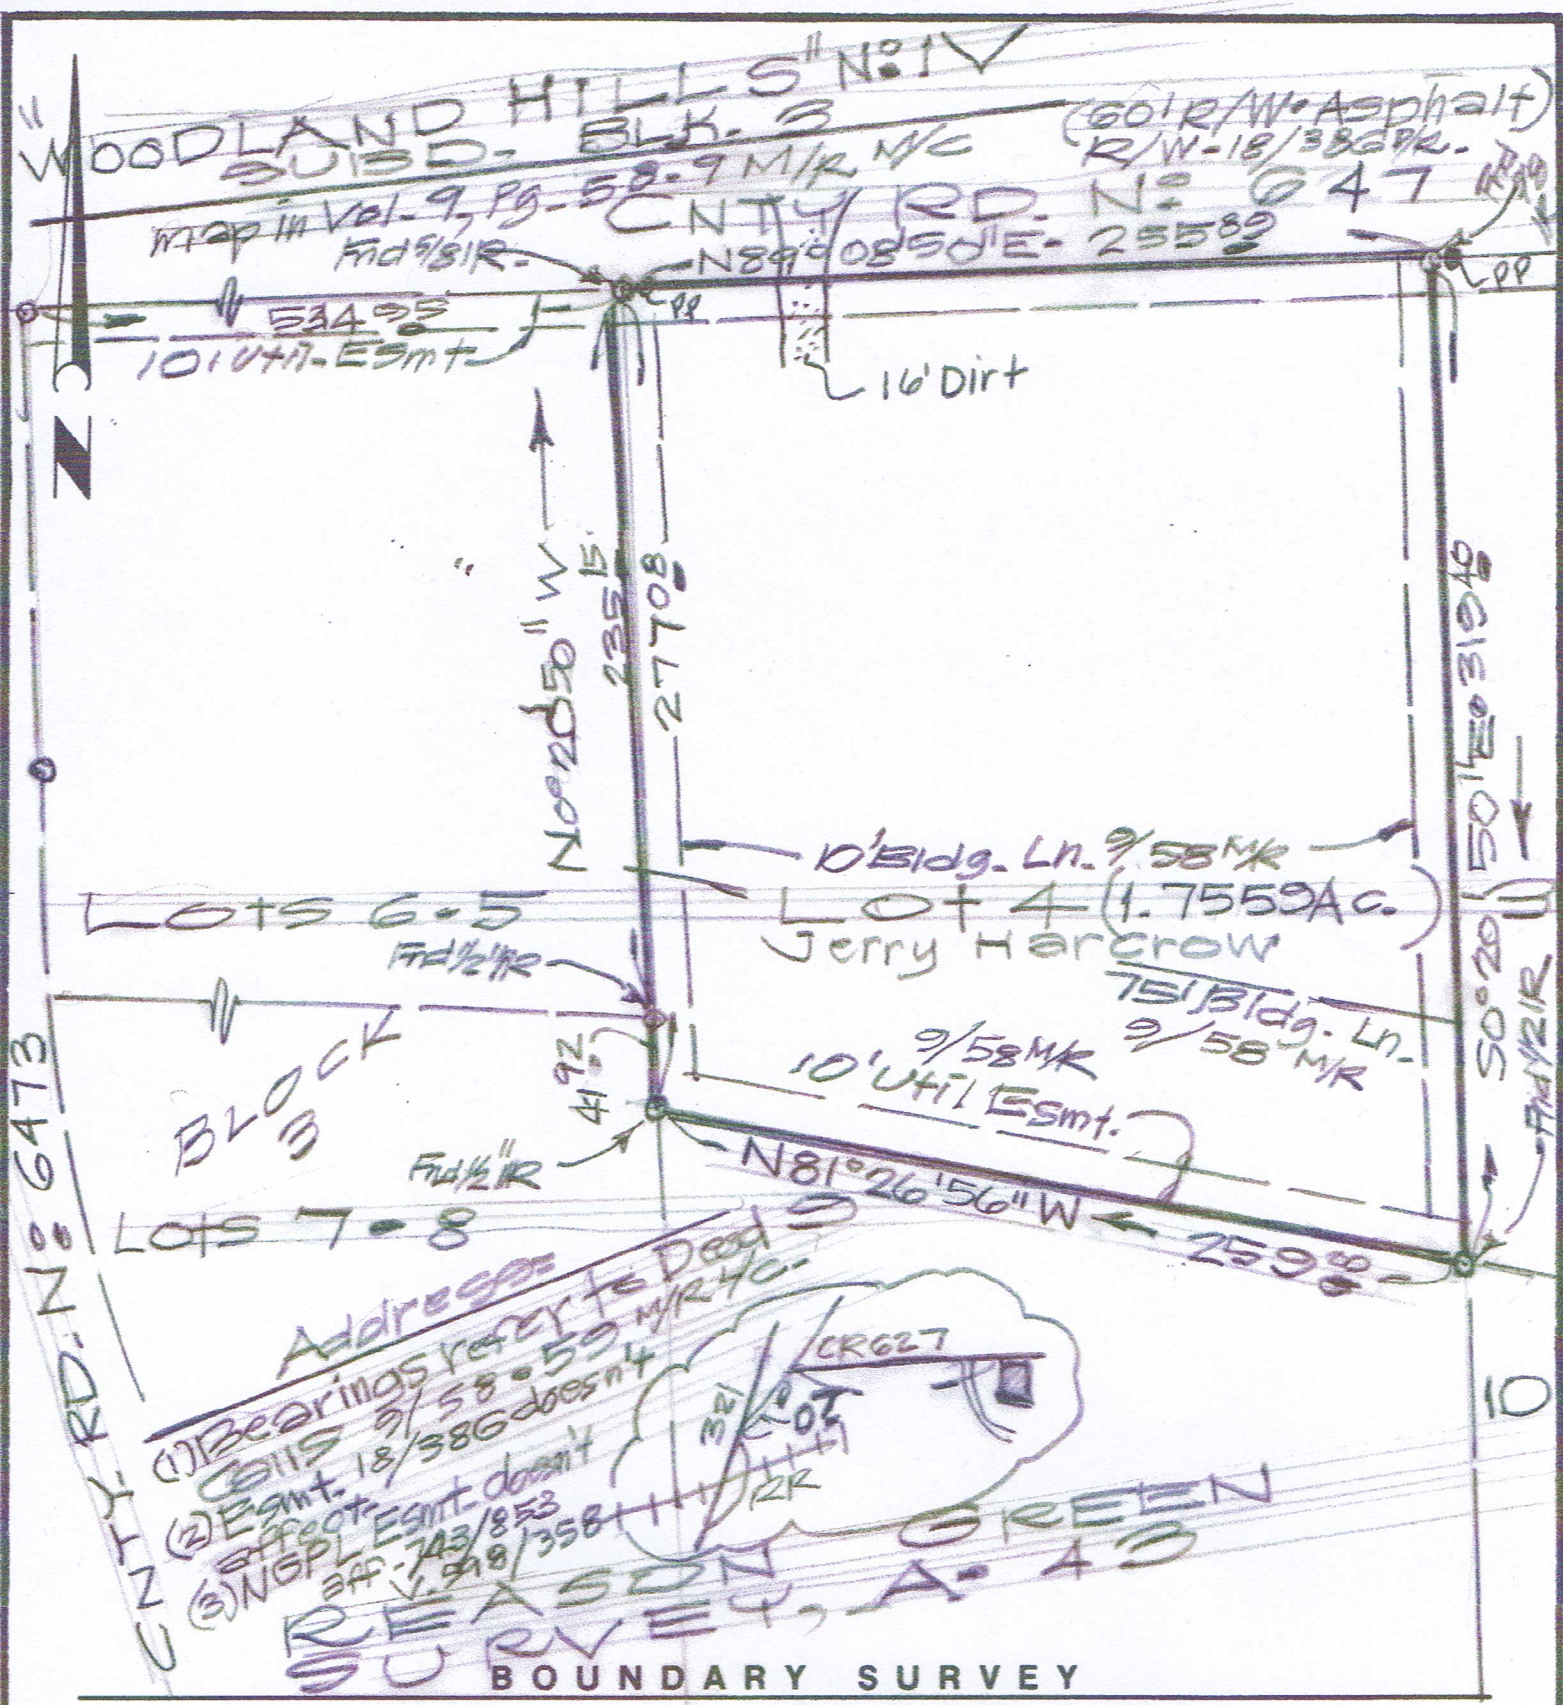 "WOODLAND HILLS" Nº IV
SUBD- BLK. 3
map in Vol-9, Pg-58-9 M/R M/C
(60' R/W-Asphalt)
R/W-18/386 P/R-
CNTY RD. Nº 647
Fnd 5/8 IR-
N89°08'50"E- 255.89
PP
PP
534.95
10' Util- Esmt-
16' Dirt
N
N0°20'50"W
235.15
277.08
S0°20'50"E 319.40
10' Bldg. Ln. 9/58 M/R
Lots 6-5
Lot 4 (1.7559 Ac.)
Jerry Harcrow
Fnd 1/2" IR
75' Bldg. Ln.
9/58 M/R
9/58 M/R
10' Util Esmt.
41.92
BLOCK
3
Fnd 1/2" IR
Fnd 1/2 IR
N81°26'56"W
259.
Lots 7-8
9
10
CNTY. RD. Nº 6473
Address=
(1) Bearings refer to Deed
Calls 9/58-59 M/R M/C-
(2) Esmt. 18/386 doesn't
affect.
(3) NGPL Esmt doesn't
aff-743/853
V. 998/358
CR627
321
RR
REASON GREEN
SURVEY, A- 43
BOUNDARY SURVEY